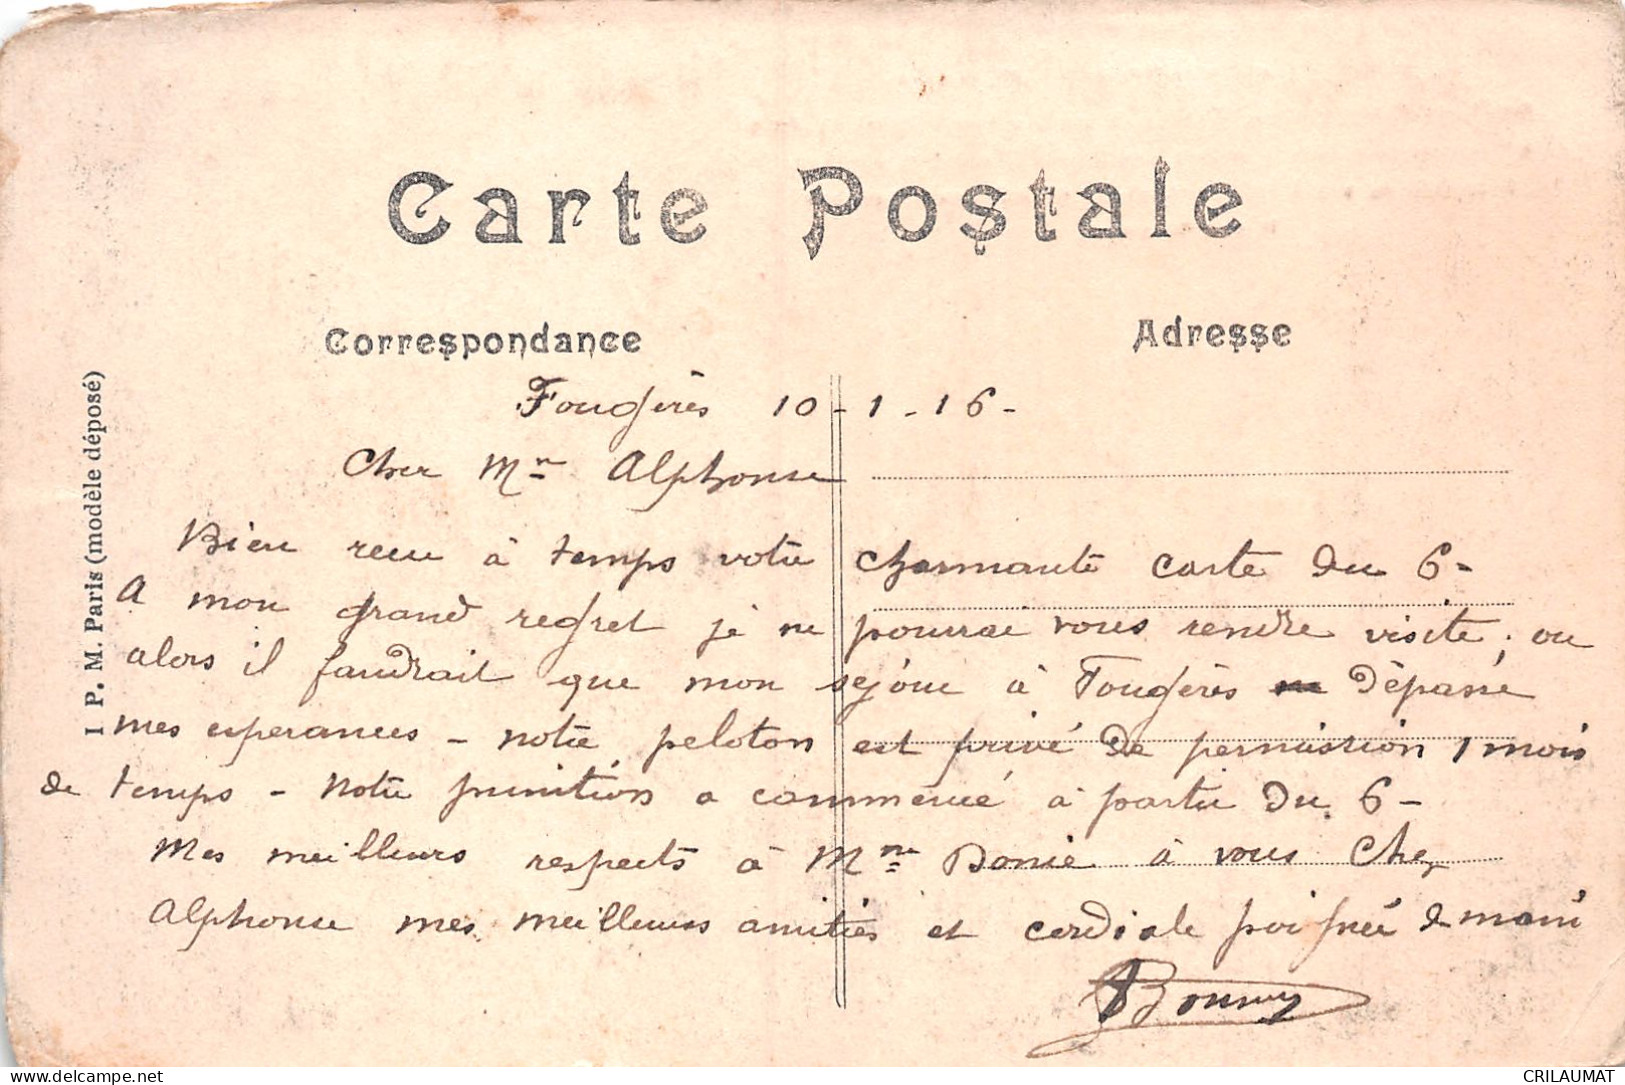 Carte Postale
Correspondance
Adresse
I P. M. Paris (modèle déposé)
Fougères 10-1-16-
Cher Mr Alphonse
Bien recu à temps votre charmante carte du 6-
A mon grand regret je ne pourrai vous rendre visite, ou
alors il faudrait que mon séjour à Fougères dépasse
mes esperances - notre peloton est privé de permission 1 mois
de temps - Notre punition a commencé à partir du 6-
Mes meilleurs respects à Mme à vous Cher
Alphonse mes meilleures amitiés et cordiale poignée de main
CRILAUMAT